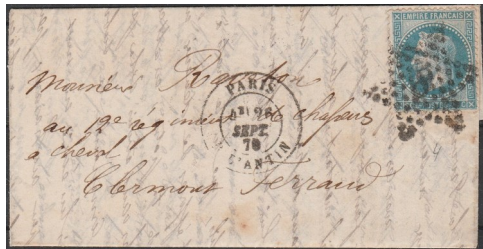 EMPIRE FRANÇAIS
PARIS
SEPT.
70
D'ANTIN
Monsieur
au 12e régiment de chasseurs
a cheval
Clermont Ferrand